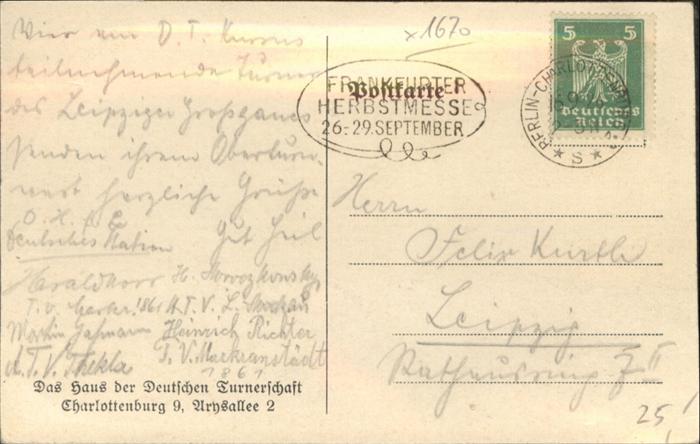 Vier am D. T. Kursus
teilnehmende Turner
des Leipziger Großgaues
senden ihrem Oberturn-
wart herzliche Grüße
Gut Heil
Deutsches Nation
H.
T. V. 1861 A. T. V. L. Mockau
Martin Heinrich Richter
A. T. V. Thekla T. V. Markranstädt
1861
Das Haus der Deutschen Turnerschaft
Charlottenburg 9, Arysallee 2
x1670
Postkarte
FRANKFURTER
HERBSTMESSE
26.-29.SEPTEMBER
5 5
Deutsches
Reich
BERLIN-CHARLOTTENBURG
* S *
Herrn
Felix Kurth
Leipzig
Rathausring 7 II
25